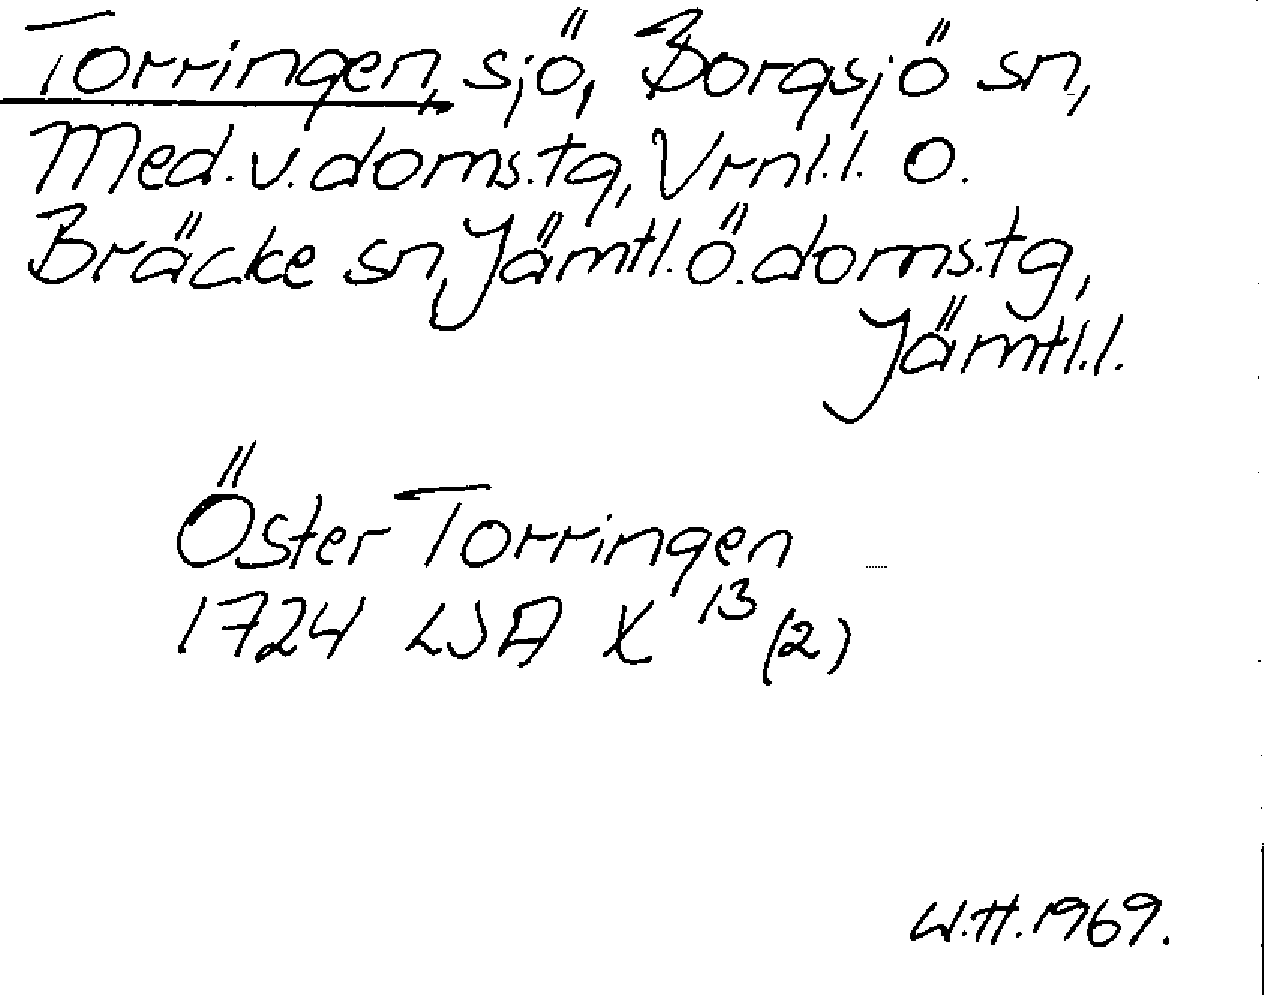 Torringen, sjö, Borgsjö sn,
Med.v.doms.tg, Vrnl.l. o.
Bräcke sn, Jämtl.ö.doms.tg,
Jämtl.l.
Öster Torringen
1724 LSA X 13 (2)
W.H. 1969.